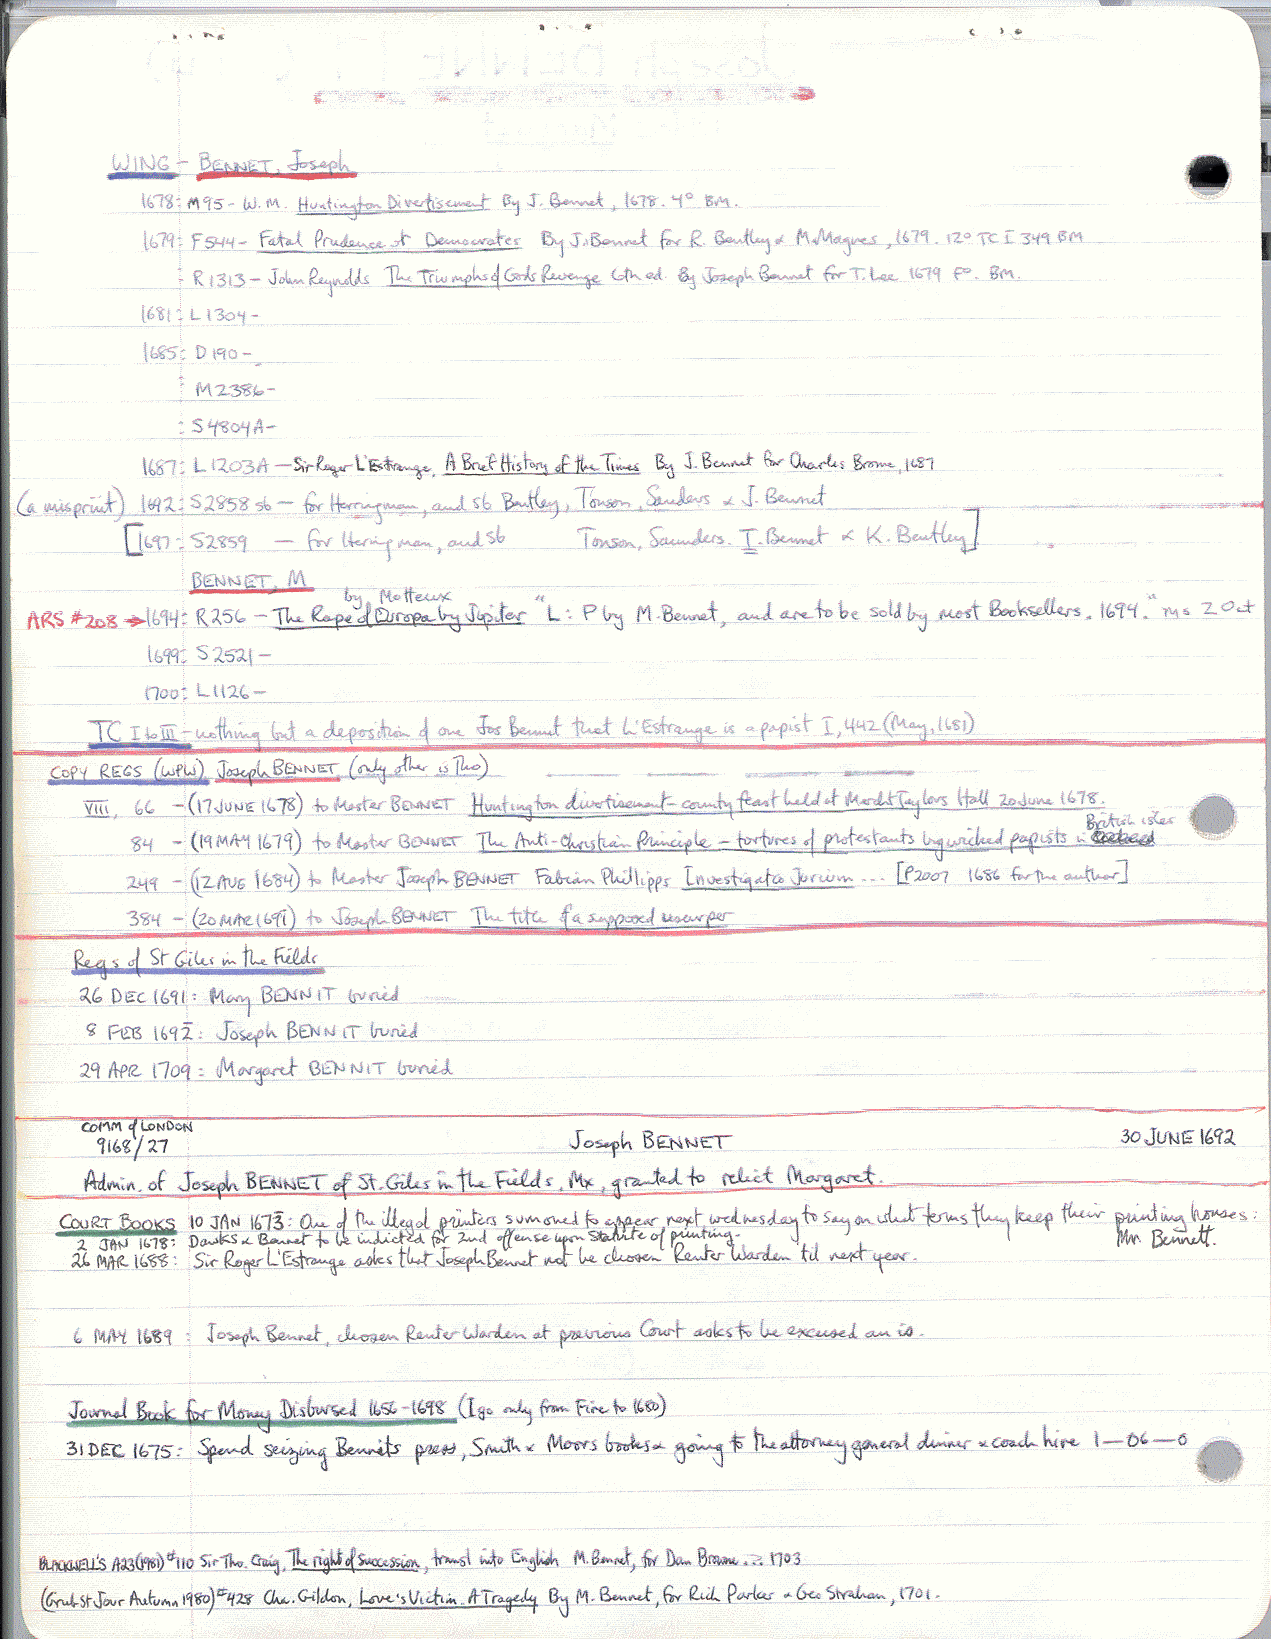 WING - BENNET, Joseph
1678: M95 - W.M. Huntington Divertisement By J. Bennet, 1678. 4° BM.
1679: F544 - Fatal Prudence of Democrates By J. Bennet for R. Bentley & M. Magnes, 1679. 12° TC I 349 BM
: R1313 - John Reynolds The Triumphs of Gods Revenge 6th ed. By Joseph Bennet for T. Lee 1679 F°. BM.
1681: L1304 -
1685: D190 -
: M2386 -
: S4804A -
1687: L1203A - Sir Roger L'Estrange, A Brief History of the Times By J. Bennet for Charles Brome, 1687
(a misprint) 1692: S2858 sb - for Herringman, and sb Bentley, Tonson, Saunders & J. Bennet
[1697: S2859 - for Herringman, and sb Tonson, Saunders. T. Bennet & K. Bentley]
BENNET, M
by Motteux
ARS #208 → 1694: R256 - The Rape of Europa by Jupiter "L: P by M. Bennet, and are to be sold by most Booksellers. 1694." ms 2 Oct
1699: S2521 -
1700: L1126 -
TC I to III - nothing but a deposition of one Jos Bennet that L'Estrange is a papist I, 442 (May, 1681)
COPY REGS (WPW) Joseph BENNET (only other is Tho)
VIII, 66 - (17 JUNE 1678) to Master BENNET Huntington divertisement - county feast held at Mercht Taylors Hall 20 June 1678.
British isles
84 - (19 MAY 1679) to Master BENNET The Anti-Christian Principle - tortures of protestants by wicked papists in
249 - (12 AUG 1684) to Master Joseph BENNET Fabian Phillipps Investigatio Jurium ... [P2007 1686 for the author]
384 - (20 MAR 1691) to Joseph BENNET The title of a supposed usurper
Regs of St Giles in the Fields
26 DEC 1691: Mary BENNIT buried
8 FEB 1692: Joseph BENNIT buried
29 APR 1709: Margaret BENNIT buried
COMM of LONDON
9168/27 Joseph BENNET 30 JUNE 1692
Admin. of Joseph BENNET of St. Giles in the Fields, Mx, granted to relict Margaret.
COURT BOOKS 10 JAN 1673: One of the illegal printers summoned to appear next wednesday to say on what terms they keep their printing houses: Mr. Bennett.
2 JAN 1678: Dawks & Bennet to be indicted for 2nd offense upon Statute of printing.
26 MAR 1688: Sir Roger L'Estrange asks that Joseph Bennet not be chosen Renter Warden 'til next year.
6 MAY 1689: Joseph Bennet, chosen Renter Warden at previous Court asks to be excused an is.
Journal Book for Money Disbursed 1656-1698 (I go only from Fire to 1680)
31 DEC 1675: Spend seizing Bennits press, Smith & Moors books & going to the attorney general dinner & coach hire 1-06-0
BLACKWELL'S A23 (1981) #110 Sir Tho. Craig, The right of Succession, transl into English M. Bennet, for Dan Browne ... 1703
(Grub St Jour Autumn 1980) #428 Cha. Gildon, Love's Victim. A Tragedy By M. Bennet, for Rich Parker & Geo Strahan, 1701.